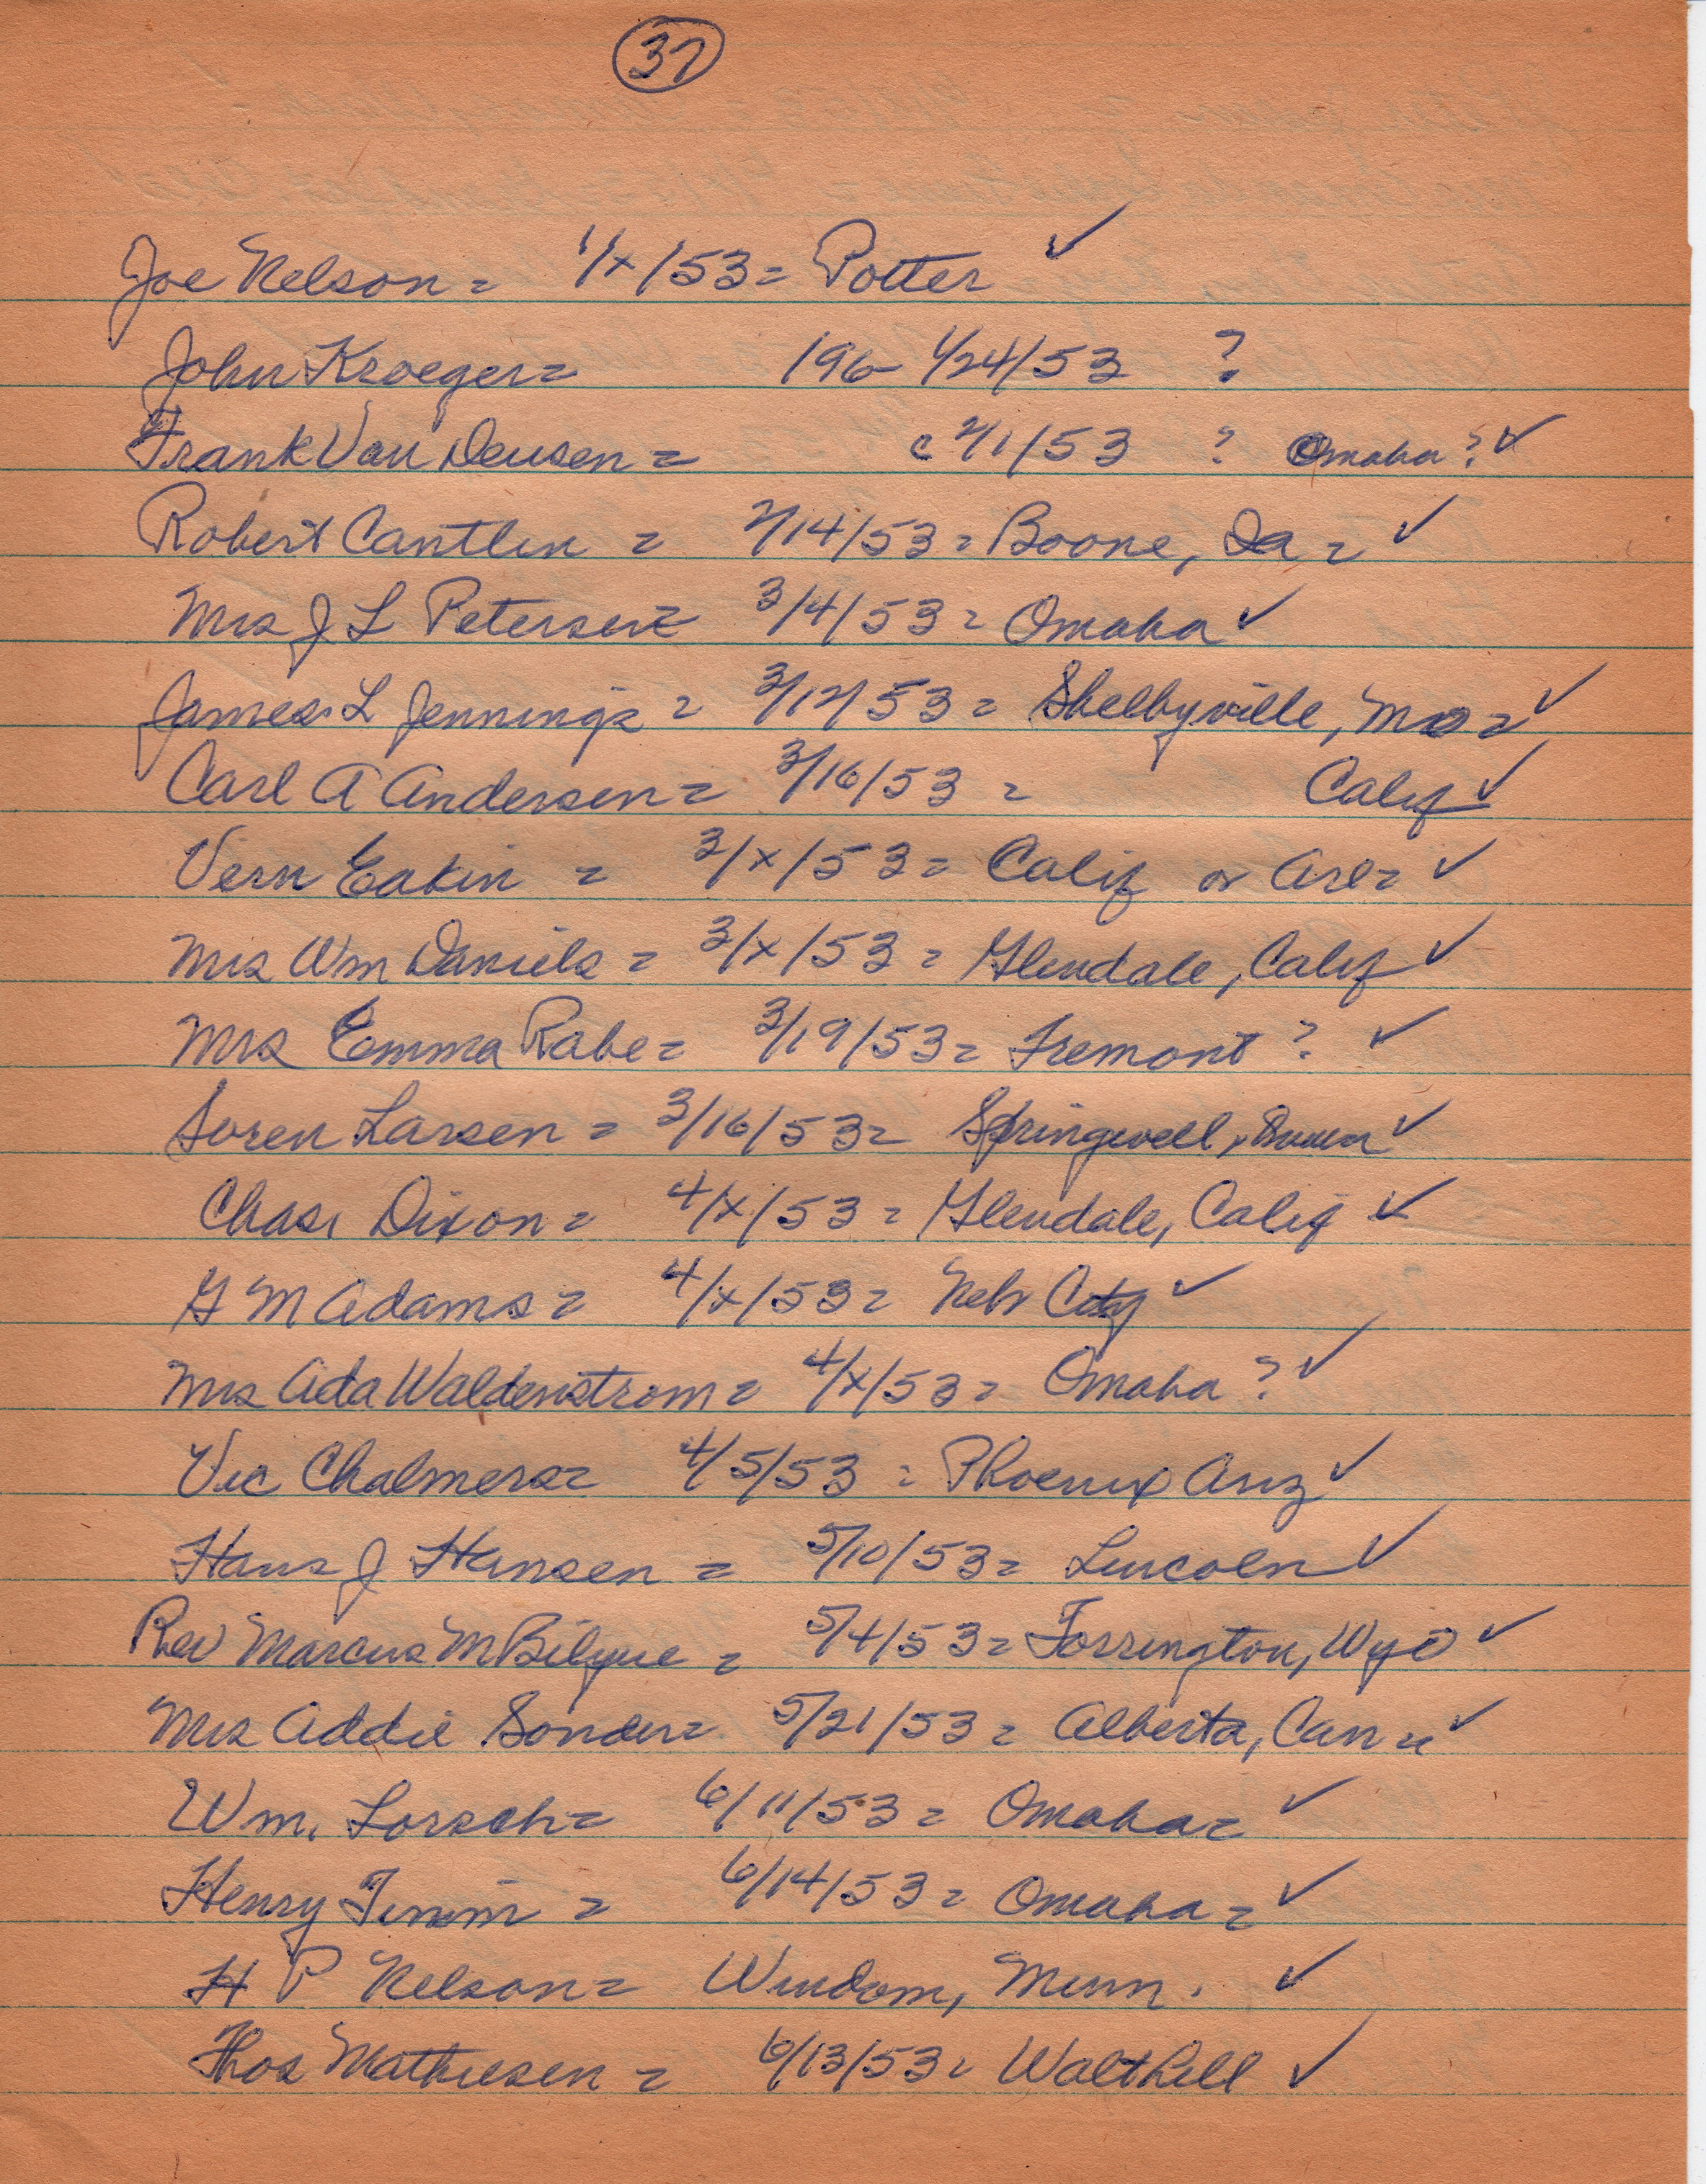 37
Joe Nelson = 1/x/53 = Potter ✓
John Kroeger = 196- 1/24/53 ?
Frank Van Deusen = c 2/1/53 ? Omaha ? ✓
Robert Cantlin = 2/14/53 = Boone, Ia = ✓
Mrs J L Petersen = 3/4/53 = Omaha ✓
James L Jennings = 3/12/53 = Shelbyville, Mo = ✓
Carl A Andersen = 3/16/53 = Calif ✓
Vern Eakin = 3/x/53 = Calif or = ✓
Mrs Wm Daniels = 3/x/53 = Glendale, Calif ✓
Mrs Emma Rabe = 3/19/53 = Fremont ? ✓
Soren Larsen = 3/16/53 = Springwell, ✓
Chas. Dixon = 4/x/53 = Glendale, Calif ✓
G M Adams = 4/x/53 = Neb City ✓
Mrs Ada Waldenstrom = 4/x/53 = Omaha ? ✓
Vic Chalmers = 4/5/53 = Phoenix Ariz ✓
Hans J Hansen = 5/10/53 = Lincoln ✓
Rev Marcus M Bilyue = 5/4/53 = Torrington, Wyo ✓
Mrs Addie Sonder = 5/21/53 = Alberta, Can = ✓
Wm. Lorsch = 6/11/53 = Omaha = ✓
Henry Timm = 6/14/53 = Omaha = ✓
H P Nelson = Windom, Minn. ✓
Thos Mathiesen = 6/13/53 = Walthill ✓